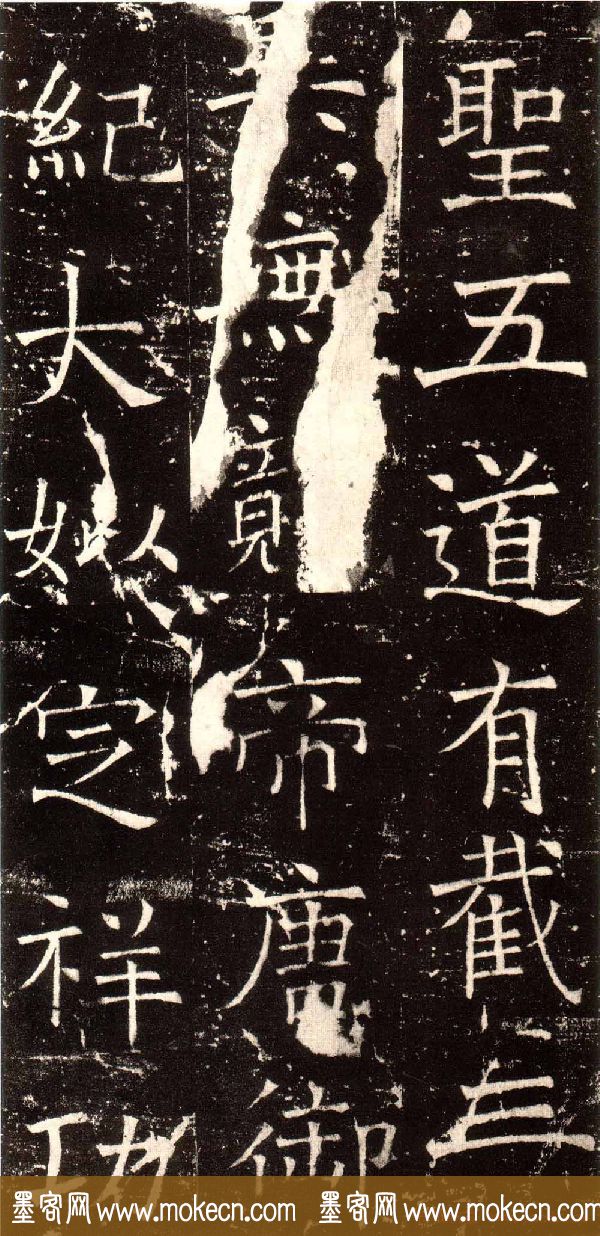 聖五道有截
無竟帝唐御
紀大姒定祥功
墨客网 www.mokecn.com 墨客网 www.mokecn.com